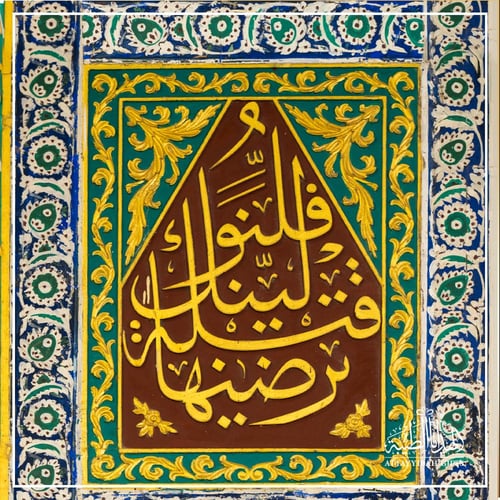 فلنو
لينك
قبلة
ترضيها